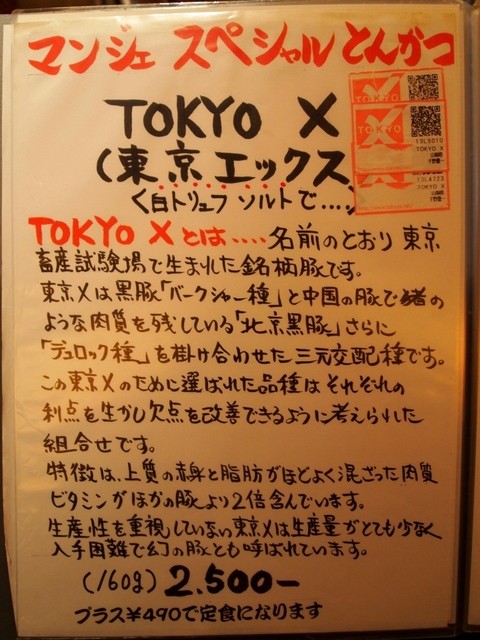 マンジェ スペシャルとんかつ
TOKYO X
(東京エックス
〈白トリュフ ソルトで....〉
TOKYO Xとは....名前のとおり東京
畜産試験場で生まれた銘柄豚です。
東京Xは黒豚「バークシャー種」と中国の豚で猪の
ような肉質を残している「北京黒豚」さらに
「デュロック種」を掛け合わせた三元交配種です。
この東京Xのために選ばれた品種はそれぞれの
利点を生かし欠点を改善できるように考えられた
組合せです。
特徴は、上質の赤身と脂肪がほどよく混ざった肉質
ビタミンがほかの豚より2倍含んでいます。
生産性を重視していない東京Xは生産量がとても少なく
入手困難で幻の豚とも呼ばれています。
(160g) 2.500-
プラス¥490で定食になります
TOKYO X
13L5010
TOKYO X
13L4723
TOKYO X